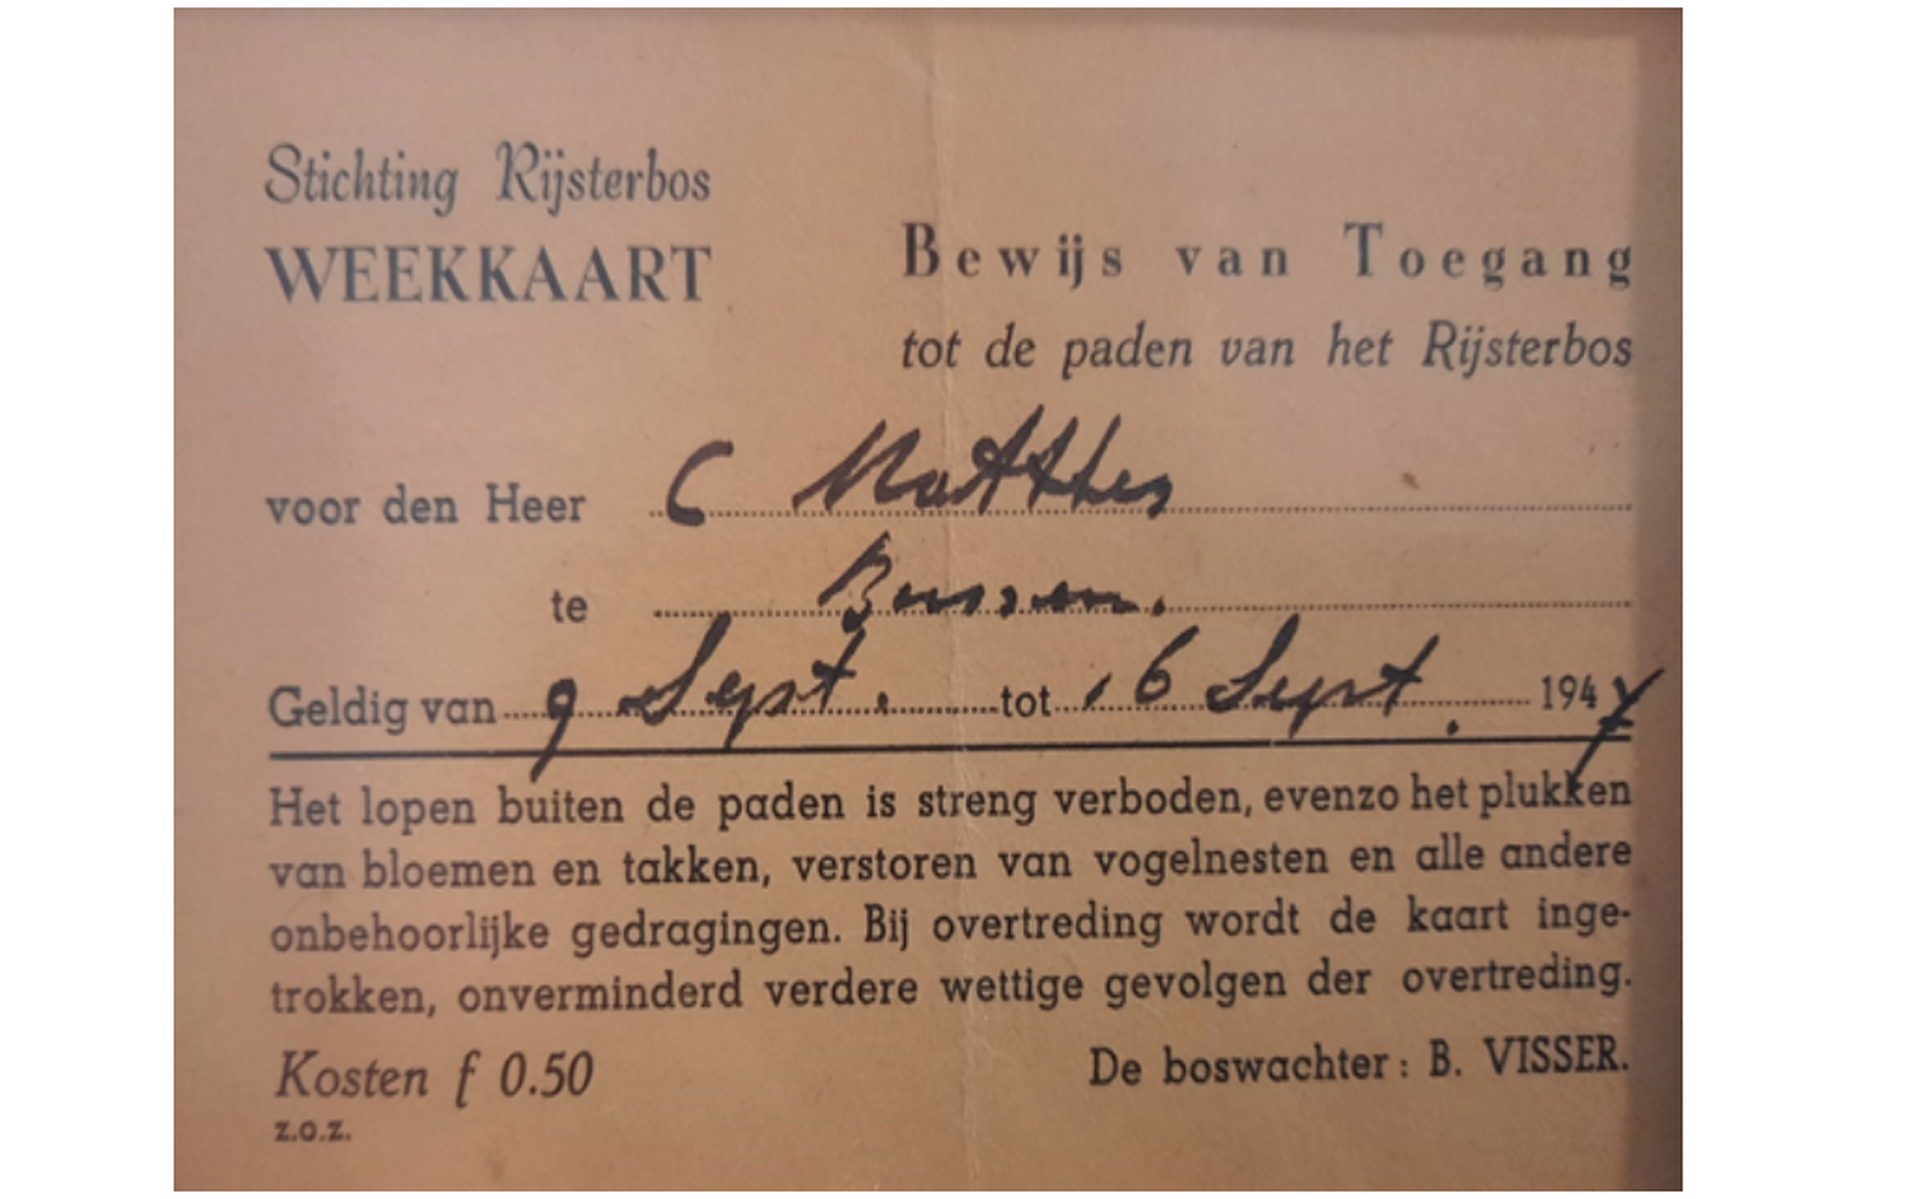 Stichting Rijsterbos
WEEKKAART
Bewijs van Toegang
tot de paden van het Rijsterbos
voor den Heer C Matthes
te Bussem.
Geldig van 9 Sept. tot 16 Sept. 1947
Het lopen buiten de paden is streng verboden, evenzo het plukken
van bloemen en takken, verstoren van vogelnesten en alle andere
onbehoorlijke gedragingen. Bij overtreding wordt de kaart inge-
trokken, onverminderd verdere wettige gevolgen der overtreding.
Kosten f 0.50
De boswachter: B. VISSER.
z.o.z.